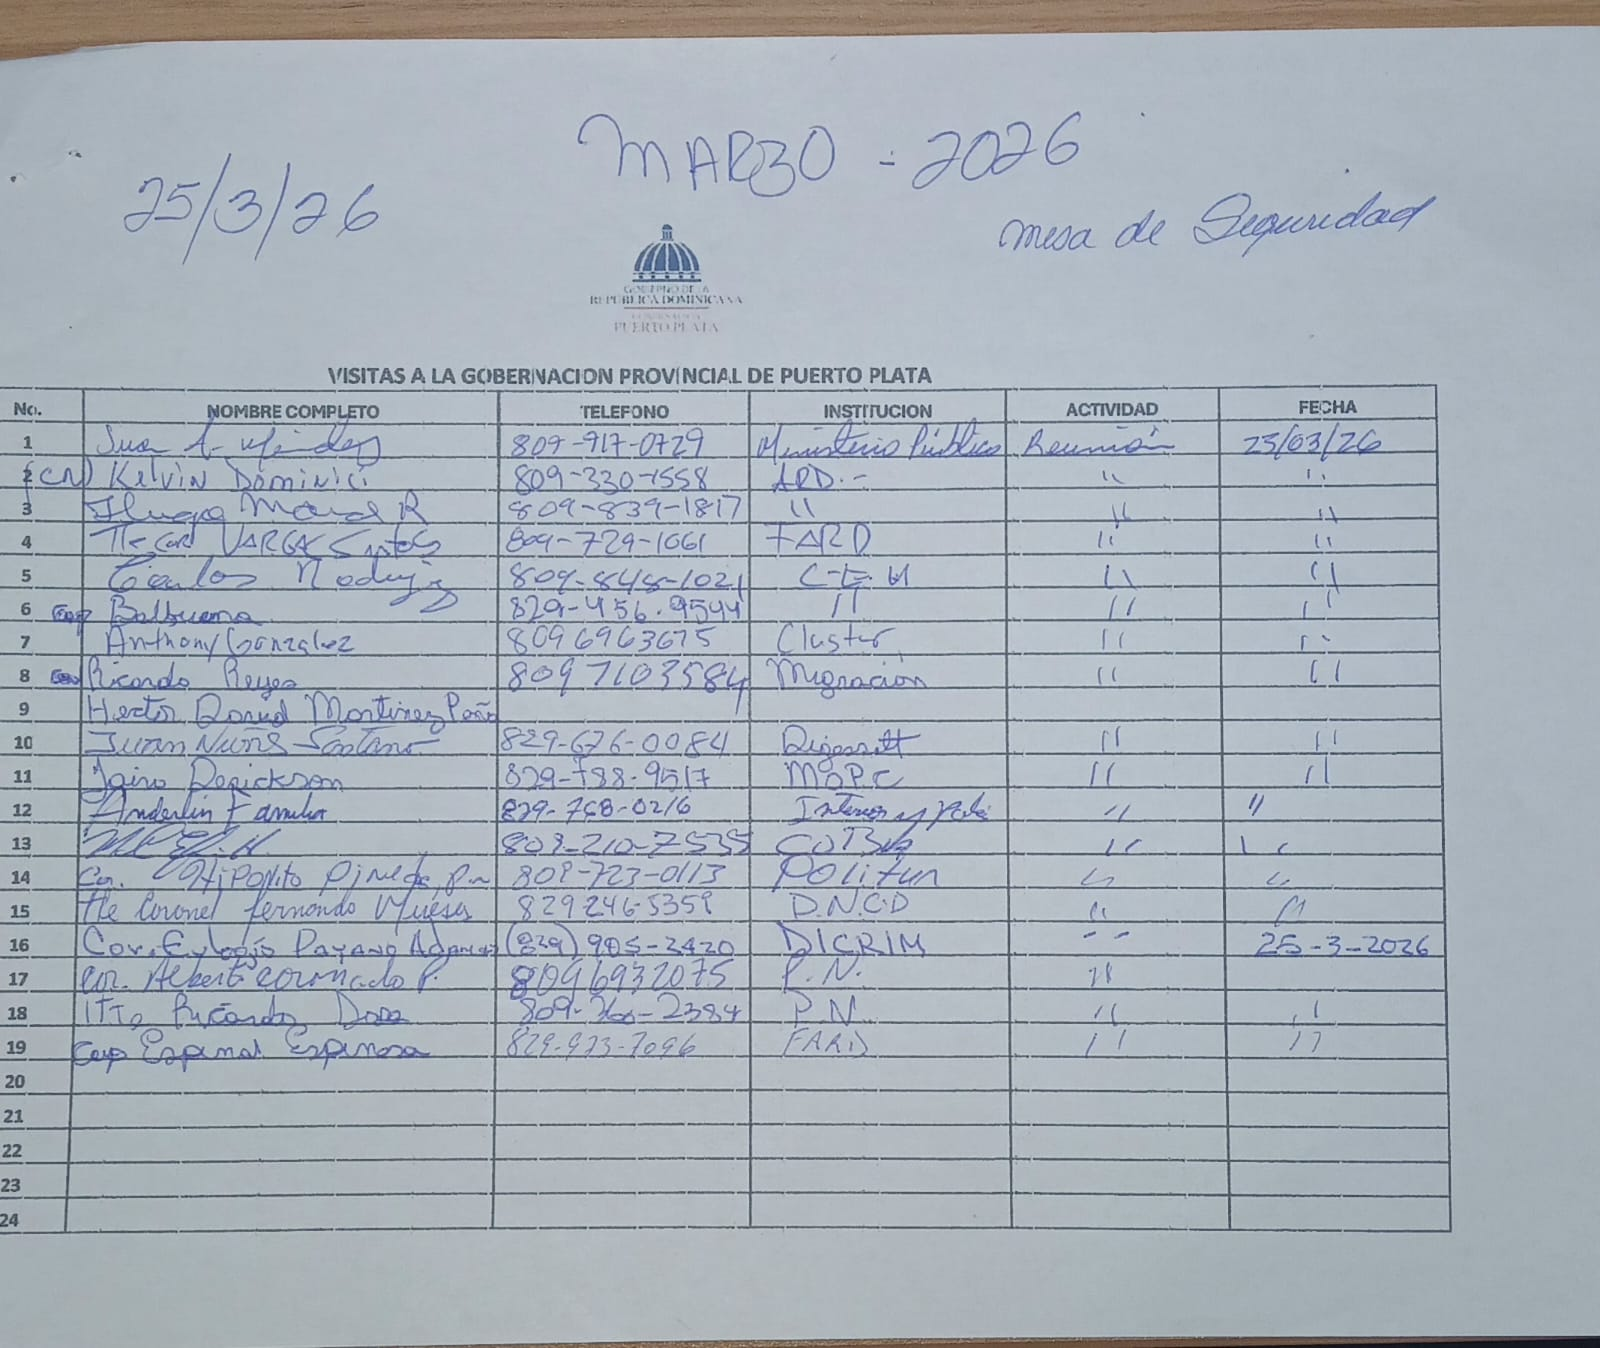 MARZO - 2026
25/3/26
mesa de Seguridad
GOBIERNO DE LA
REPÚBLICA DOMINICANA
PUERTO PLATA
VISITAS A LA GOBERNACION PROVINCIAL DE PUERTO PLATA
No. NOMBRE COMPLETO TELEFONO INSTITUCION ACTIVIDAD FECHA
1 Juan A. 809-917-0729 Ministerio Público Reunión 25/03/26
2 (CN) Kelvin Dominici 809-330-1558 ARD.- " "
3 809-839-1817 " " "
4 VARGAS Santos 809-729-1061 FARD " "
5 Carlos 809-848-1021 " "
6 Cap Balbuena 829-456-9544 " " "
7 Anthony Gonzalez 8096963675 Cluster " "
8 Ricardo Reyes 8097103584 Migración " "
9 Hector David Martinez Peña
10 Juan Nuñe 829-676-0084 Digesett " "
11 Jairo Derickson 829-788-9517 " "
12 Anderlin Familia 829-768-0216 Interior y " "
13 809-210-7535 " "
14 Cor. Hipolito Pineda P.N 809-723-0113 Politur " "
15 Tte Coronel Fernando 829246-5359 D.N.C.D " "
16 Cor. Eulogio Payano (829) 905-2420 DICRIM " 25-3-2026
17 Cor. Albert Coronado P. 8096932075 P.N. "
18 Ricardo 809-360-2384 P.N. " "
19 Cap Espinal Espinosa 829-973-7096 FARD " "
20
21
22
23
24